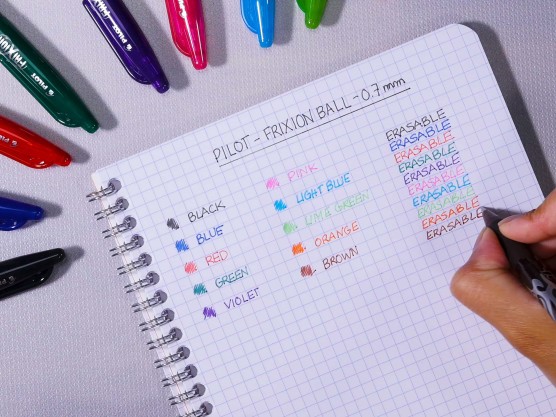 PILOT - FRIXION BALL - 0.7mm
BLACK
BLUE
RED
GREEN
VIOLET
PINK
LIGHT BLUE
LIMA GREEN
ORANGE
BROWN
ERASABLE
ERASABLE
ERASABLE
ERASABLE
ERASABLE
ERASABLE
ERASABLE
ERASABLE
ERASABLE
ERASABLE
PILOT
PILOT
PILOT